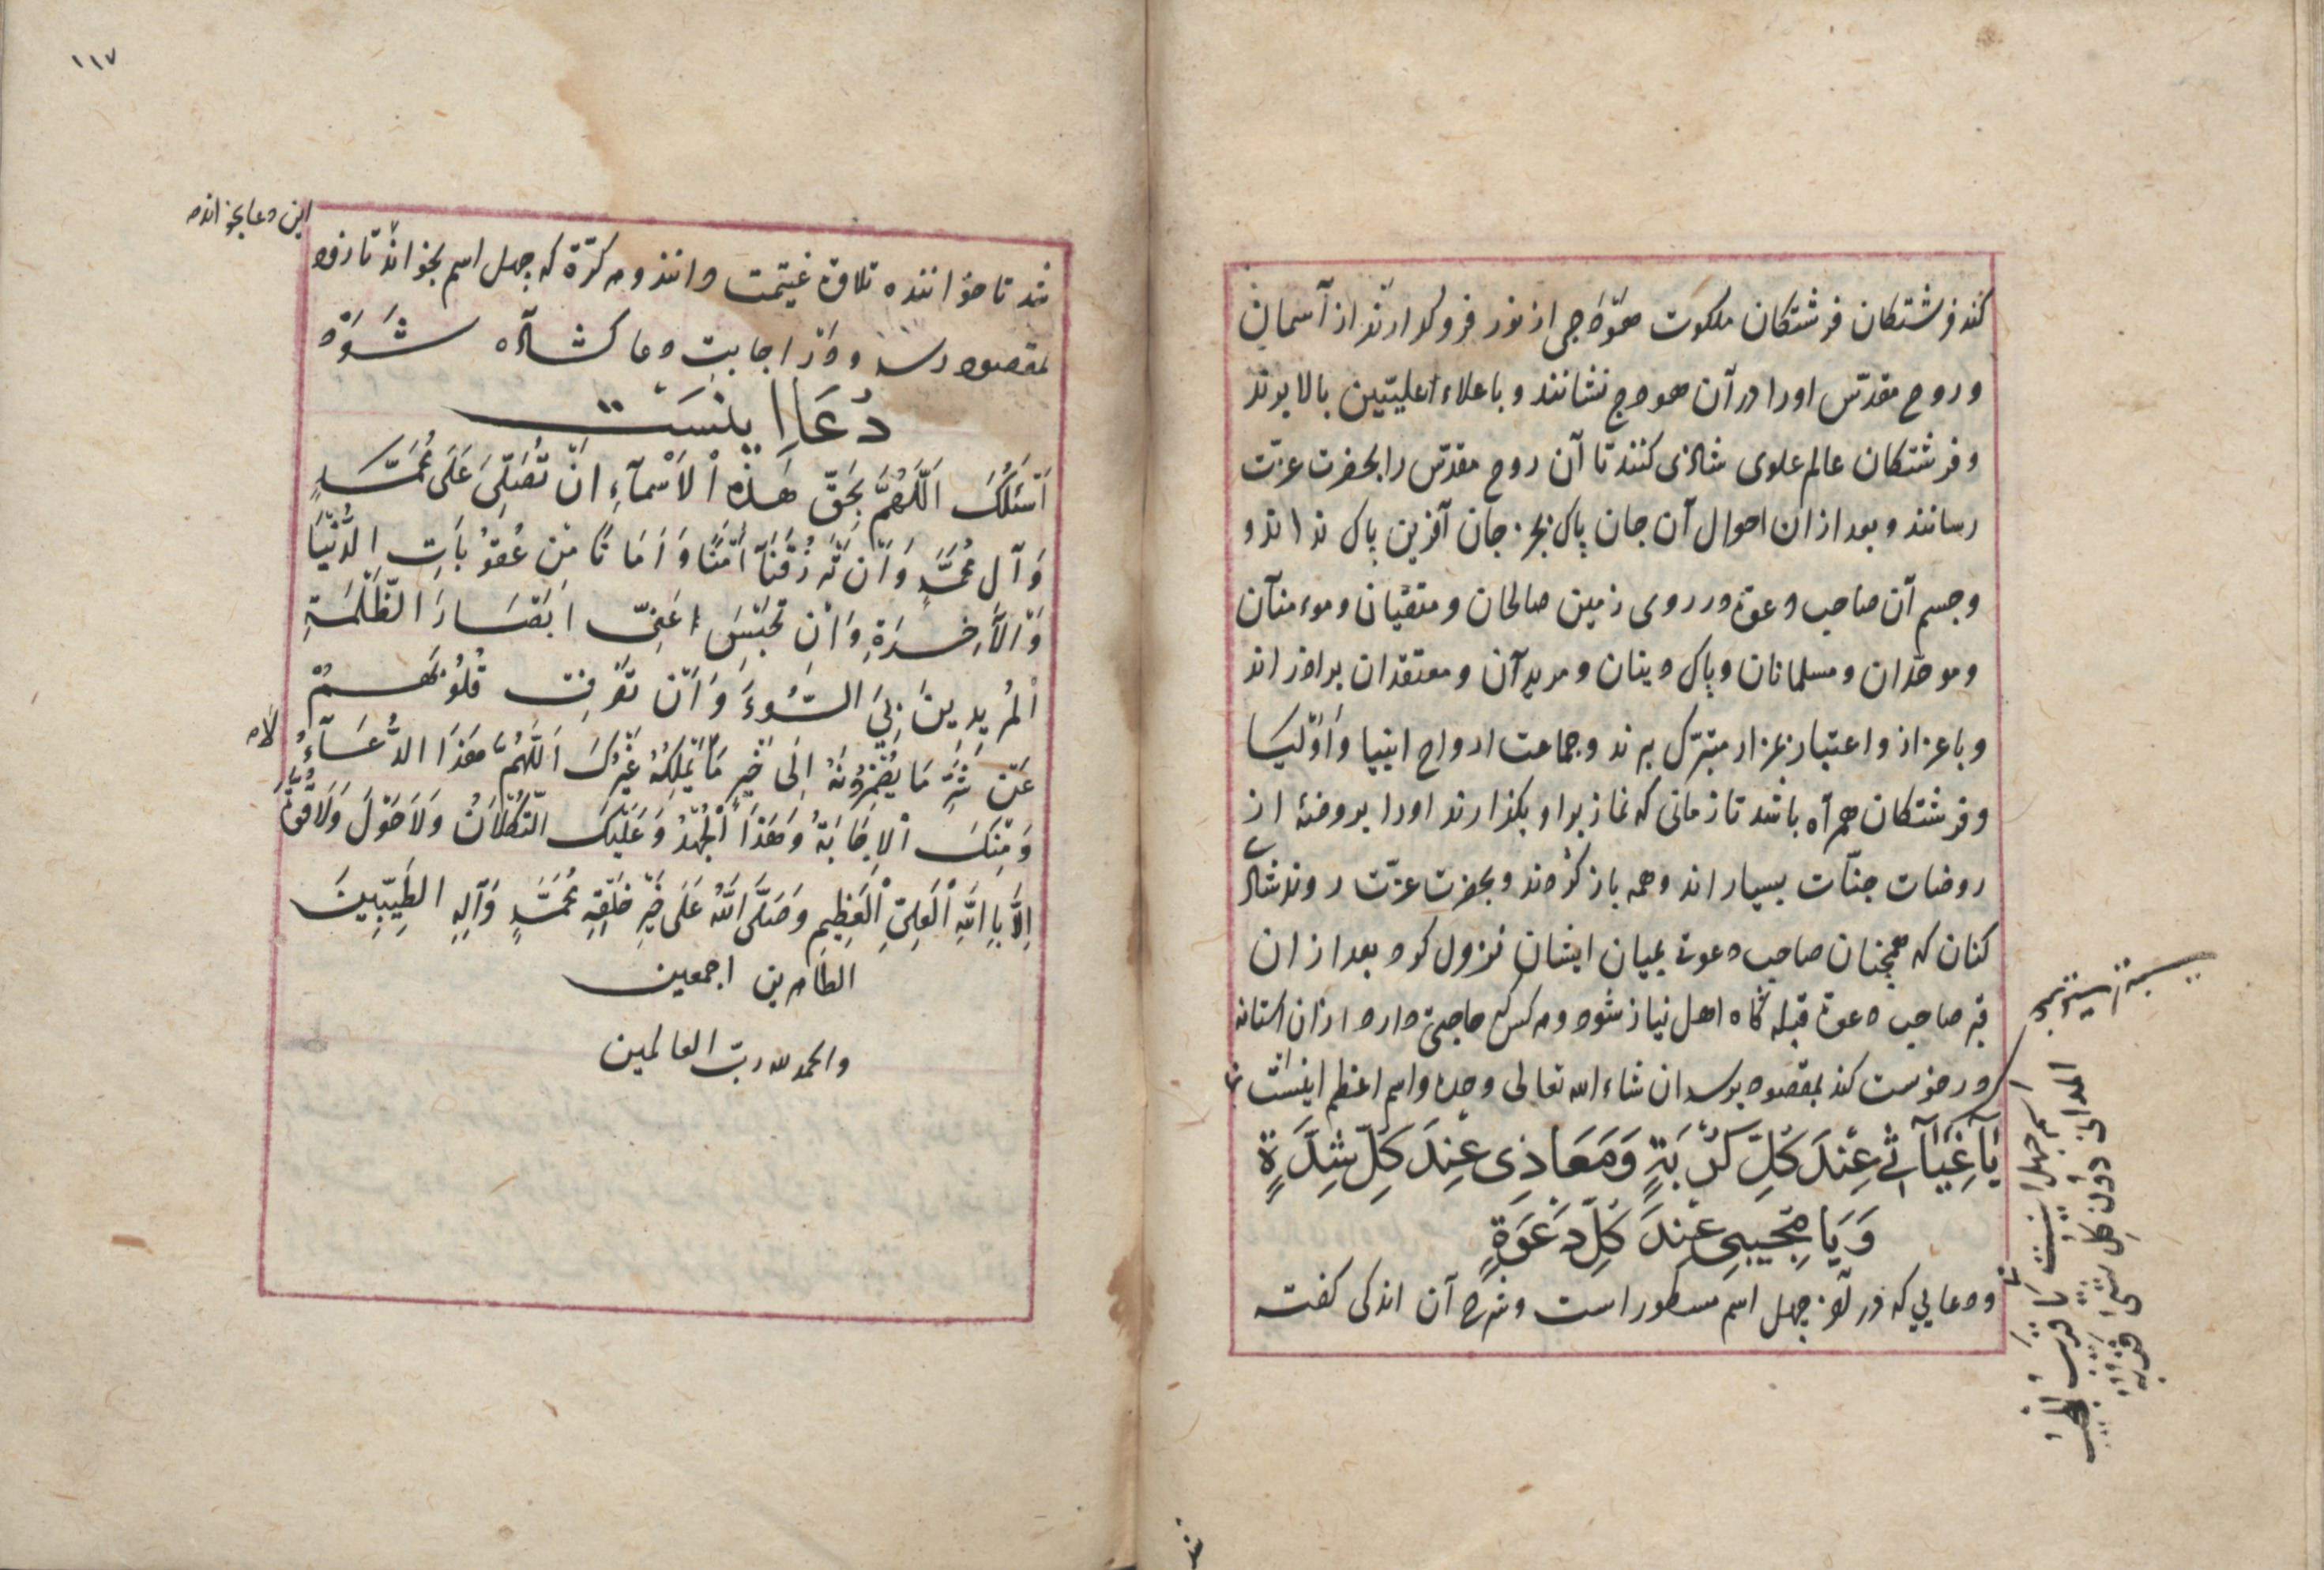 کند فرشتکان فرشتکان ملکوت هوّدجی از نور فرو کذارند از آسمان
و روح مقدّس اورا در آن هودج نشانند و باعلاء اعلیّین بالا برند
و فرشتکان عالم علوی شادی کنند تا آن روح مقدّس را بحضرت عزّت
رسانند و بعد ازان احوال آن جان پاک بجز جان آفرین پاک نداند و
و جسم آن صاحب دعوة در روی زمین صالحان و متقیان و موءمنآن
و موحّدان و مسلمانان و پاک دینان و مریدآن و معتقدان برافراند
و باعزاز و اعتبار بمزار متبرّک برند و جماعت ارواح انبیا و اولیا
و فرشتکان همرآه باشد تا زمانی که نماز براو بکذارند اورا بروضهٔ از
روضات جنّات بسپاراند و همه باز کردند و بحضرت عزّت روند شادی
کنان که همچنان صاحب دعوت بمیان ایشان نزول کرد بعد ازان
قبر صاحب دعوة قبله کاه اهل نیاز شود و هر کس که حاجتی دارد ازان استانه
درخوست کند بمقصود برسد ان شاء الله تعالی وحده و اسم اعظم اینست
یَا غِیَاثِی عِنْدَ کُلِّ کُرْبَةٍ وَمَعَاذِی عِنْدَ کُلِّ شِدَّةٍ
وَیَا مُجِیبِی عِنْدَ کُلِّ دَعْوَةٍ
و دعایی که در آخر چهل اسم مسطور است و شرح آن اندکی کفته
اسم چهل اینست یا قریب المجیب
المدانی دون کل شی قربه
شد
١١٧
این دعا بخواند
شد تا خواننده تلاوة غنیمت داند و هر کرّة که چهل اسم بخواند تا زود
بمقصود رسد و در اجابت دعا کشاده شود
دُعَا اینست
اَسْئَلُکَ اَللّٰهُمَّ بِحَقِّ هَذِهِ الْاَسْمَآءِ اَنْ تُصَلِّیَ عَلَی مُحَمَّدٍ
وَآلِ مُحَمَّدٍ وَاَنْ تَرْزُقَنَا اَمْنًا وَاَمَانًا مِنْ عُقُوبَاتِ الدُّنْیَا
وَالْآخِرَةِ وَاَنْ تَحْبِسَ عَنِّی اَبْصَارَ الظَّلَمَةِ
الْمُرِیدِینَ بِیَ السُّوءَ وَاَنْ تَصْرِفَ قُلُوبَهُمْ
عَنْ شَرِّ مَا یُضْمِرُونَهُ اِلَی خَیْرِ مَا یَمْلِکُهُ غَیْرُکَ اَللّٰهُمَّ هَذَا الدُّعَآءُ
لَا
وَمِنْکَ الْاِجَابَةُ وَهَذَا الْجُهْدُ وَعَلَیْکَ التُّکْلَانُ وَلَا حَوْلَ وَلَا قُوَّةَ
اِلَّا بِاللّٰهِ الْعَلِیِّ الْعَظِیمِ وَصَلَّی اللّٰهُ عَلَی خَیْرِ خَلْقِهِ مُحَمَّدٍ وَآلِهِ الطَّیِّبِینَ
الطاهرین اجمعین
والحمد لله ربّ العالمین